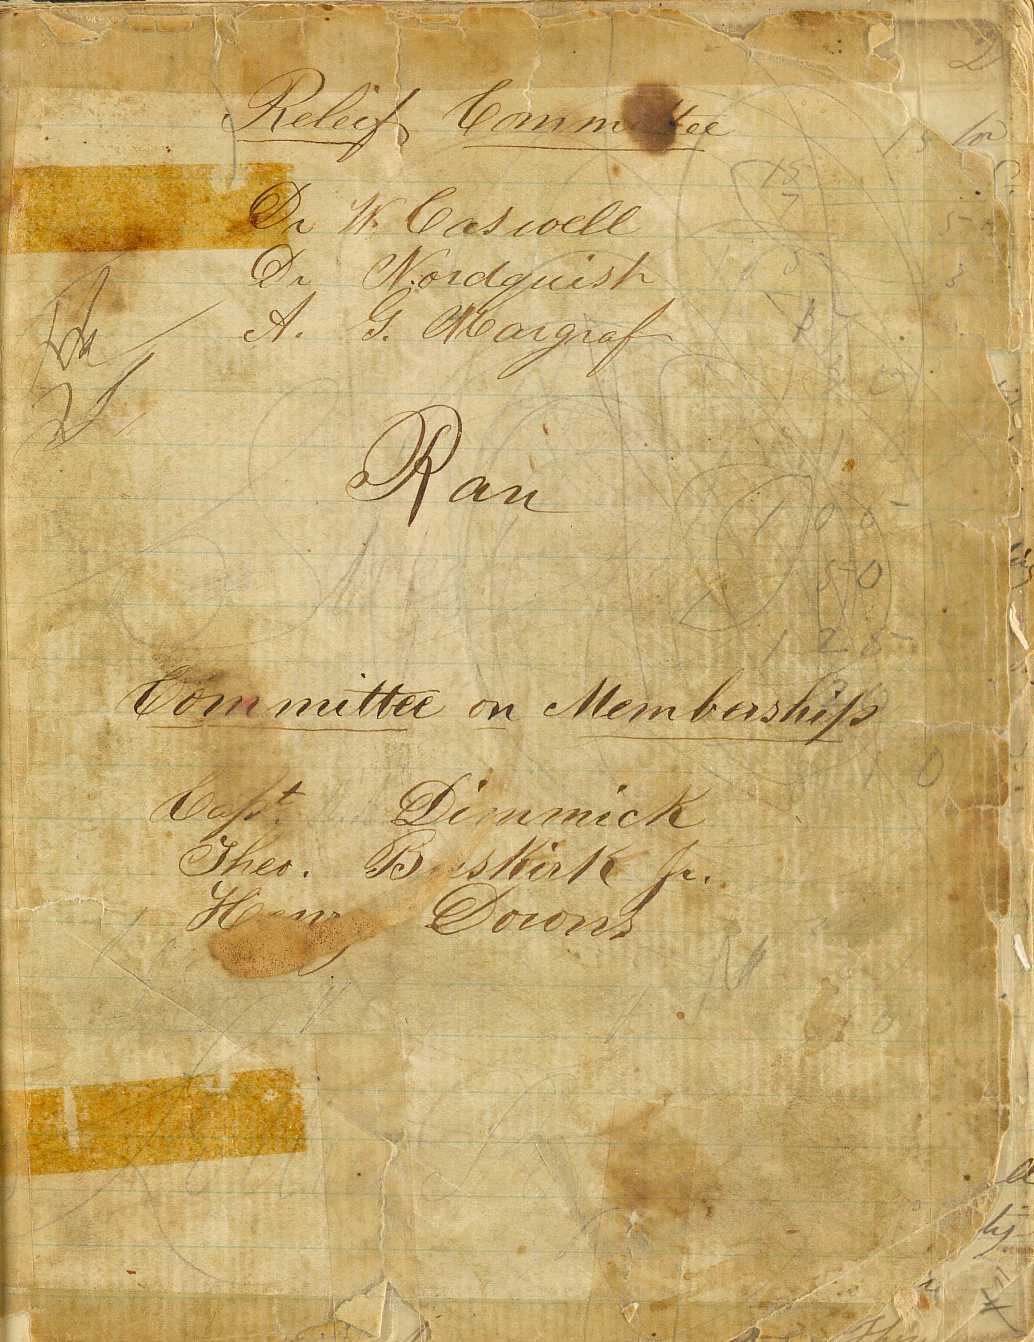 Releif Committee
Dr W. Caswell
Dr Nordquish
A. G. Margraf
Ran
Committee on Membership
Capt. Dimmick
Theo. Buskirk Jr.
Henry Downs
15
7
105
50
125
0